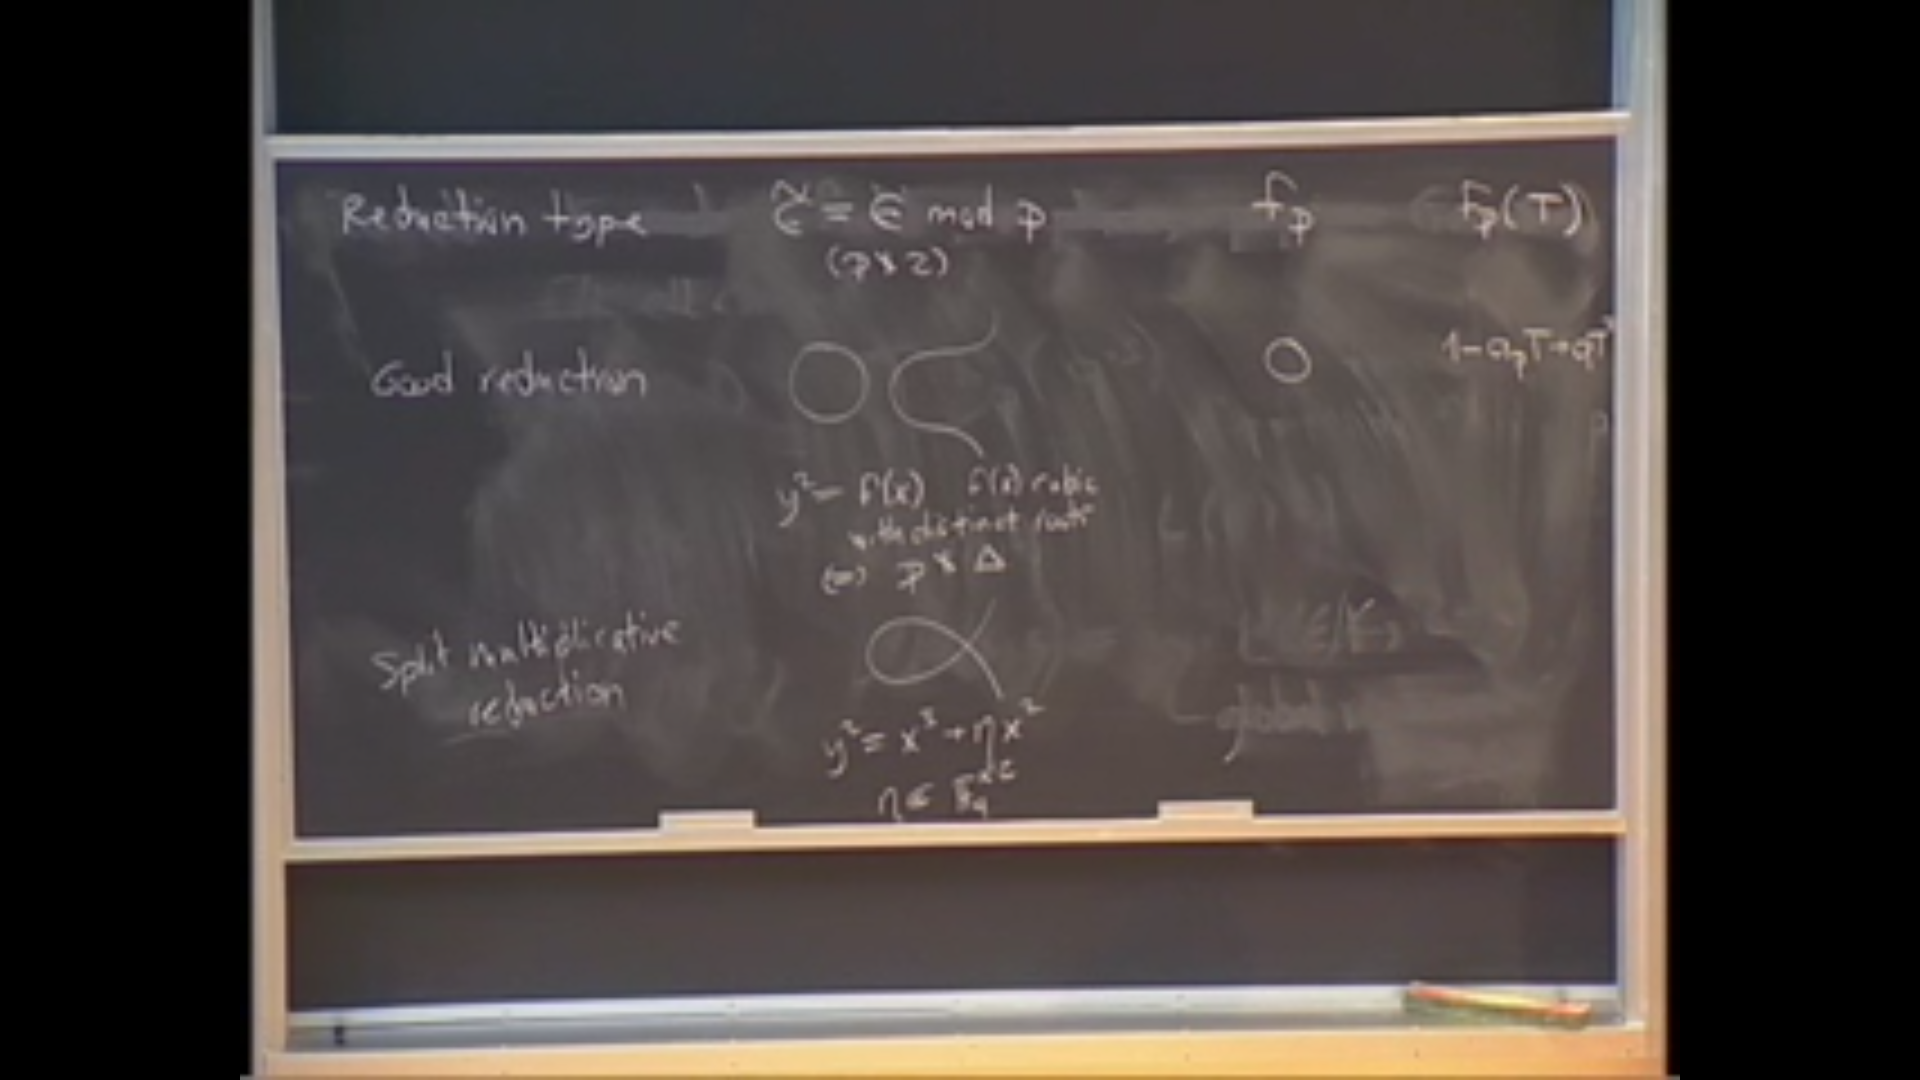 Reduction type C̃ = C̃ mod p f_p F_p(T)
(p ∤ 2)
Good reduction 0 1-a_pT+qT²
y² = f(x) f(x) cubic
with distinct roots
(⇔) p ∤ Δ
Split multiplicative
reduction
y² = x³ + ηx²
η ∈ F_q^×2
(E/K)
global